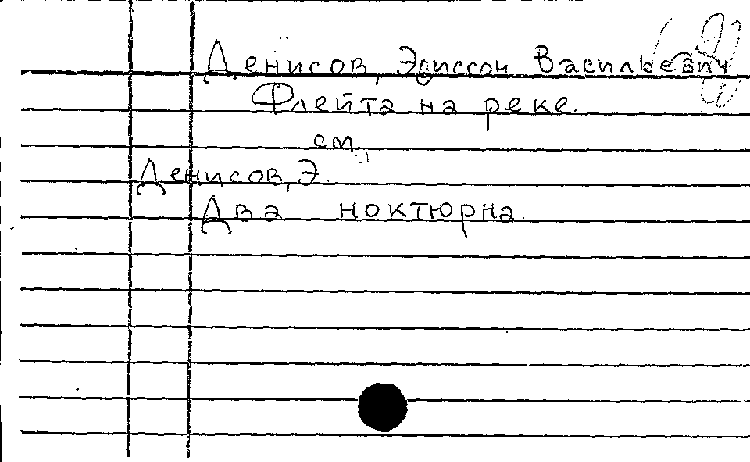 Денисов, Эдиссон Васильевич
Флейта на реке.
см.
Денисов, Э.
Два ноктюрна.